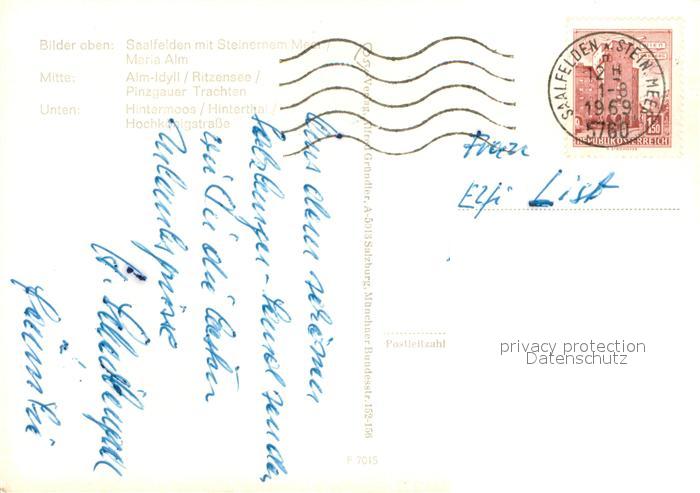 Bilder oben: Saalfelden mit Steinernem Meer /
Maria Alm
Mitte: Alm-Idyll / Ritzensee /
Pinzgauer Trachten
Unten: Hintermoos / Hinterthal /
Hochkönigstraße
Verlag Alfred Gründler, A-5013 Salzburg, Münchner Bundesstr. 152-156
SAALFELDEN A. STEIN. MEER
12 H
1969
5760
1.50
REPUBLIK ÖSTERREICH
Frau
Elfi List
Aus dem schönen
Salzburger-Land senden
wir Dir die besten
Urlaubsgrüsse
Postleitzahl
privacy protection
Datenschutz
F 7015